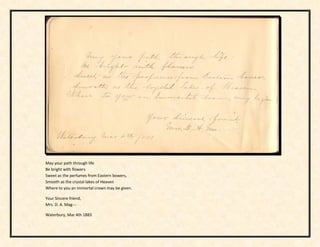 May your path through life
Be bright with flowers
Sweet as the perfumes from Eastern bowers,
Smooth as the crystal lakes of Heaven
Where to you an Immortal crown may be given.
Your Sincere friend,
Mrs. D. A. M
Waterbury Mar 4th 1885
May your path through life
Be bright with flowers
Sweet as the perfumes from Eastern bowers,
Smooth as the crystal lakes of Heaven
Where to you an Immortal crown may be given.
Your Sincere friend,
Mrs. D. A. Mag---
Waterbury, Mar 4th 1885